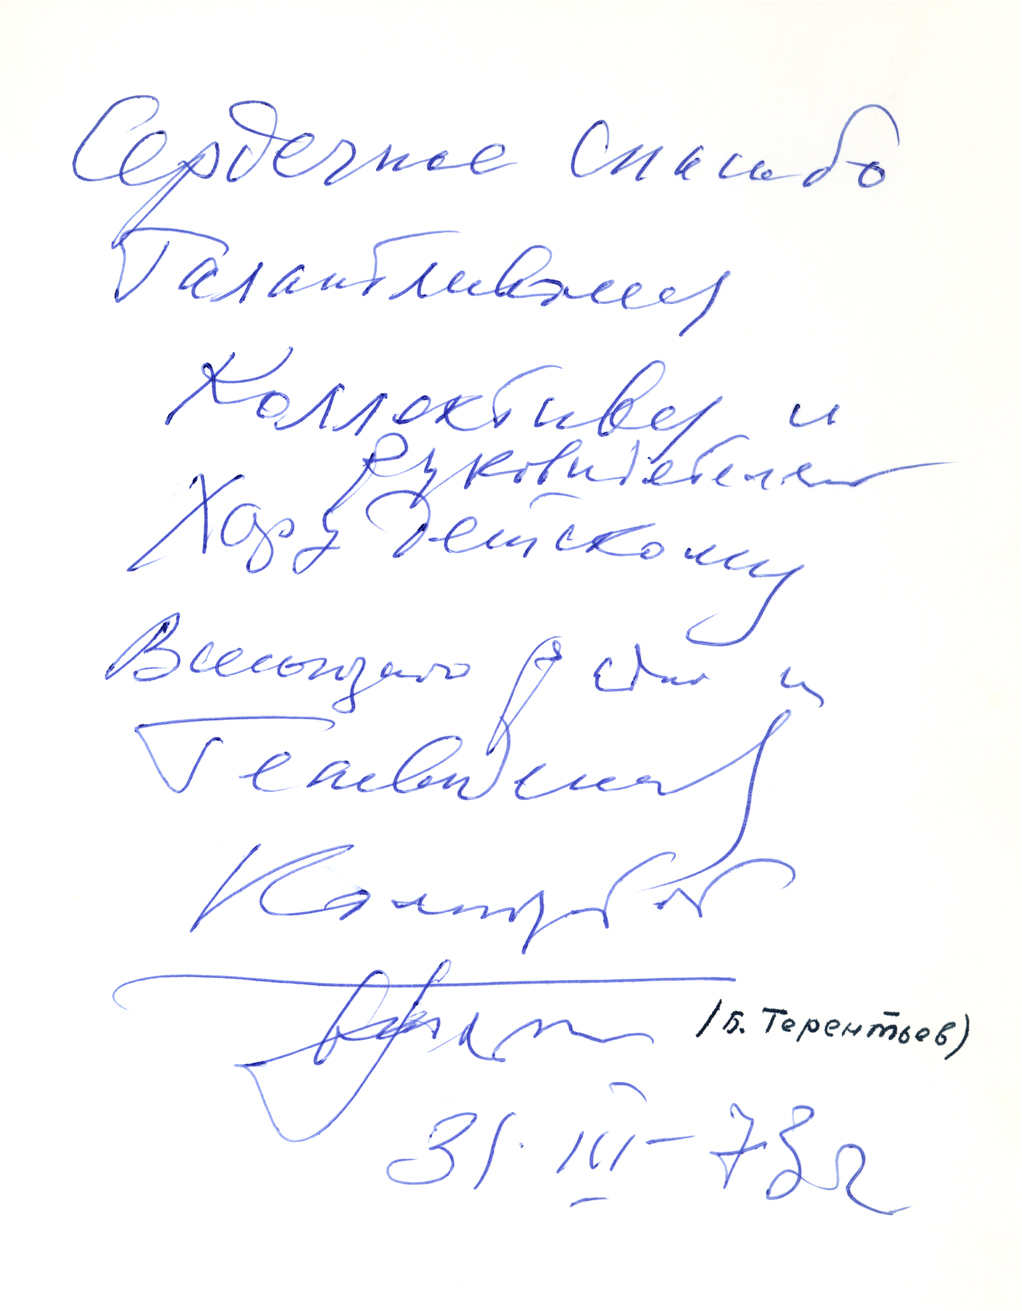 Сердечное спасибо
Талантливому
Коллективу и
руководителям
Хору Детскому
Всесоюзного радио и
Телевидения
Композитор
(Б. Терентьев)
31. III - 73 г